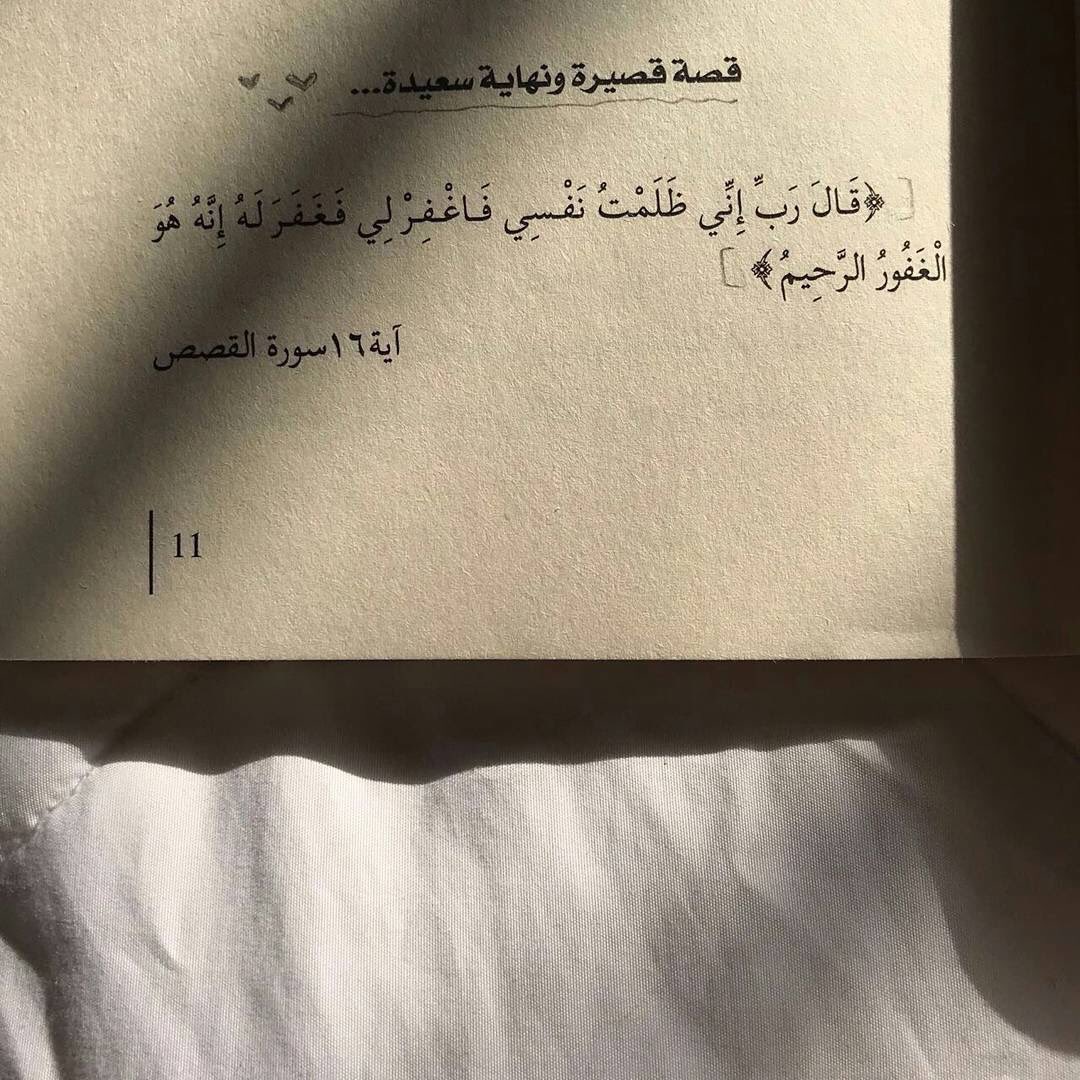 قصة قصيرة ونهاية سعيدة...
﴿قَالَ رَبِّ إِنِّي ظَلَمْتُ نَفْسِي فَاغْفِرْ لِي فَغَفَرَ لَهُ إِنَّهُ هُوَ
الْغَفُورُ الرَّحِيمُ﴾
آية١٦سورة القصص
11